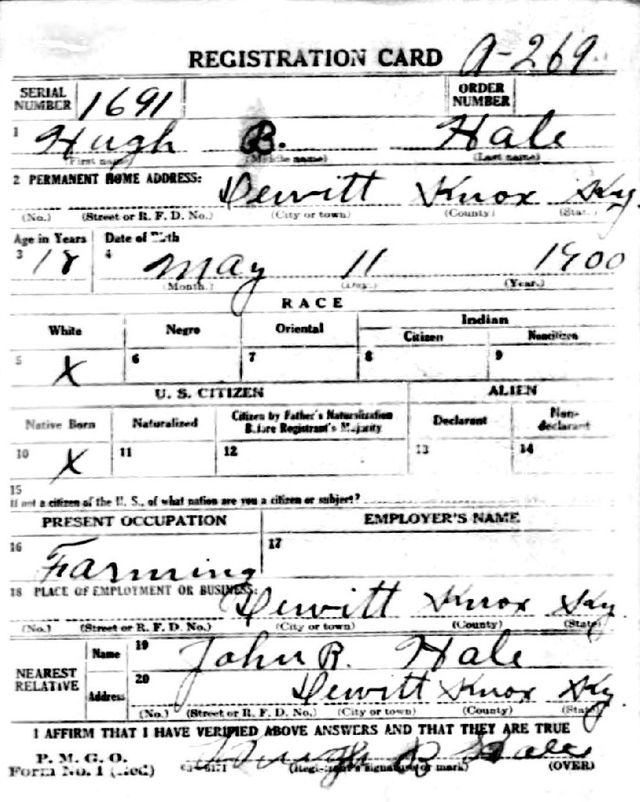 REGISTRATION CARD A-269
SERIAL NUMBER 1691 ORDER NUMBER
1 Hugh B. Hale
(First name) (Middle name) (Last name)
2 PERMANENT HOME ADDRESS: Dewitt Knox Ky.
(No.) (Street or R. F. D. No.) (City or town) (County) (State)
Age in Years Date of Birth
3 18 4 May 11 1900
(Month.) (Day.) (Year.)
RACE
White Negro Oriental Indian
Citizen Noncitizen
5 X 6 7 8 9
U. S. CITIZEN ALIEN
Native Born Naturalized Citizen by Father's Naturalization Before Registrant's Majority Declarant Non-declarant
10 X 11 12 13 14
15
If not a citizen of the U. S., of what nation are you a citizen or subject?
PRESENT OCCUPATION EMPLOYER'S NAME
16 Farming 17
18 PLACE OF EMPLOYMENT OR BUSINESS: Dewitt Knox Ky.
(No.) (Street or R. F. D. No.) (City or town) (County) (State)
NEAREST RELATIVE
Name 19 John R. Hale
Address 20 Dewitt Knox Ky
(No.) (Street or R. F. D. No.) (City or town) (County) (State)
I AFFIRM THAT I HAVE VERIFIED ABOVE ANSWERS AND THAT THEY ARE TRUE
P. M. G. O. Hugh B Hale
Form No. 1 (Red) (Registrant's signature or mark) (OVER)